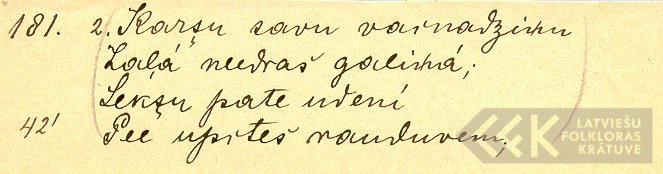 181. 2. Karşu savu vainadziņu
Zaļá needras galiņá;
Lekşu pate udení
42' Pee upites rauduvem;
LATVIEŠU
FOLKLORAS
KRĀTUVE